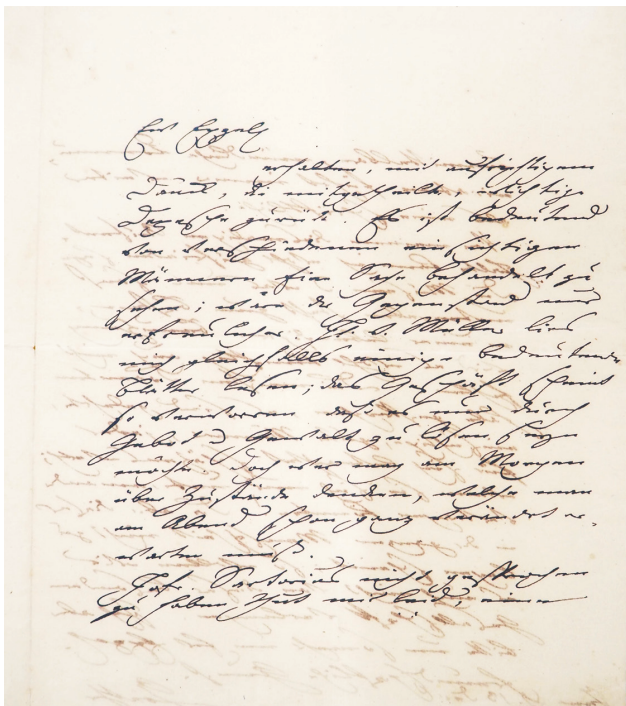 Ew Exzell
erhalten, mit aufrichtigem
Danck, die mitgetheilte, wichtige
Depesche zurück. Es ist bedeutend
von verschiedenen einsichtigen
Männern Eine Sache behandelt zu
sehen; wäre der Gegenstand nur
erfreulicher. v. Müller lies
mich gleichfalls einige bedeutende
Blätter lesen; das Geschäft scheint
so verworren daß es nur durch
Gebot u Gewalt zu lösen seyn
möchte. Doch wer mag am Morgen
über Zustände dencken, welche man
am Abend schon ganz verändert er-
warten muß.
Hofr. Sartorius nicht gesprochen
zu haben thut mir leid, einen